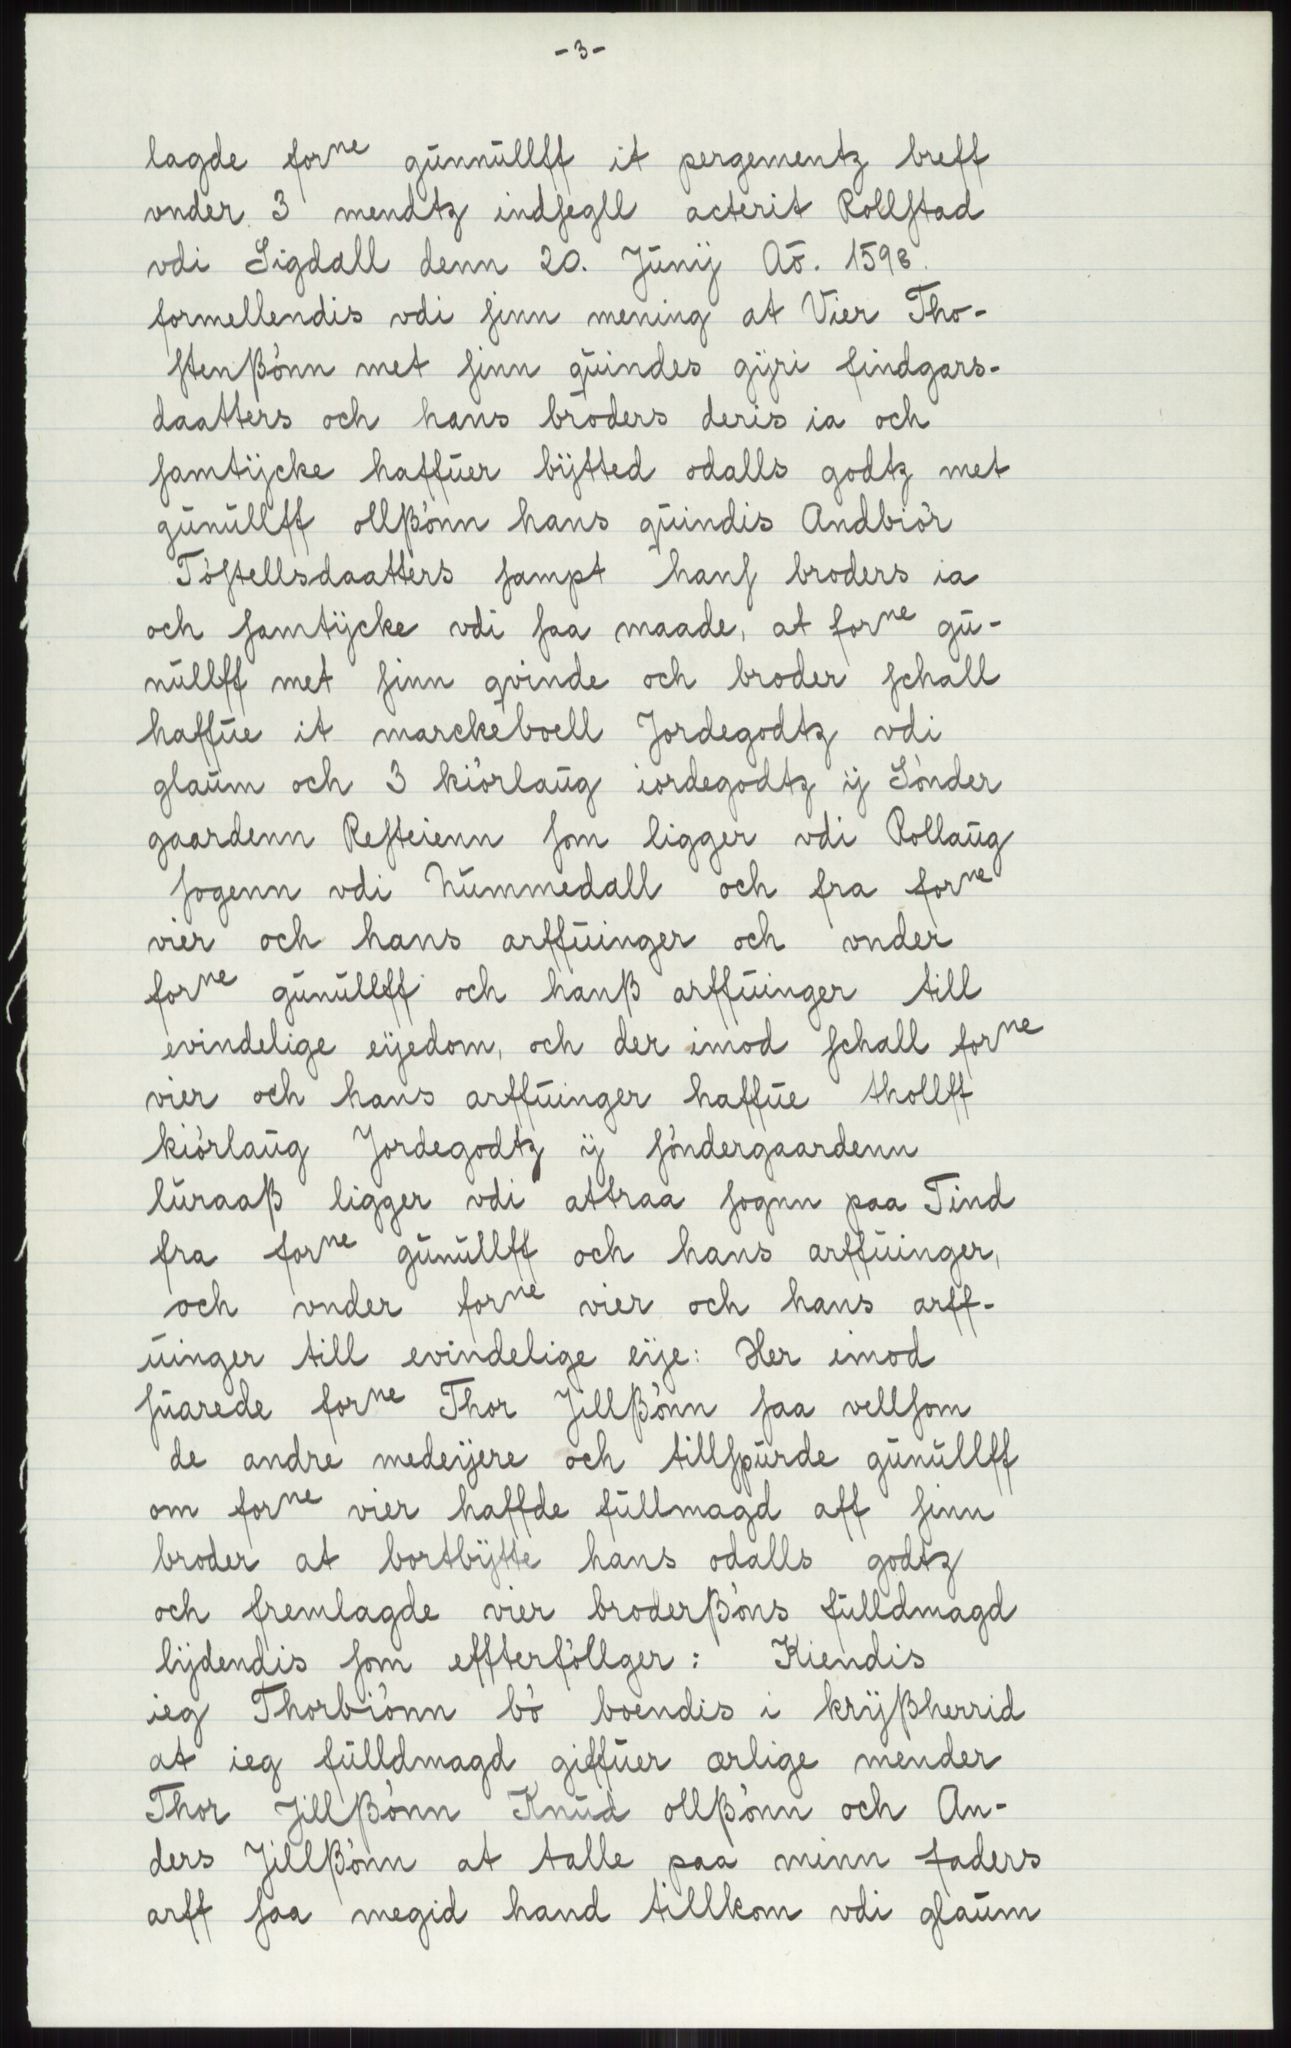 -3-
lagde forne gunnullff it pergementz breff
vnder 3 mendtz indsegll acterit Rollstad
vdi Sigdall denn 20. Junij Aō. 1598.
formellendis vdi sinn mening at Vier Tho-
stenßönn met sinn quindes gÿri findgars-
daatters och hans broders deris ia och
samtÿcke haffuer bÿtted odalls godtz met
gunullff ollßönn hans quindis Andbiör
Töstellsdaatters sampt hans broders ia
och samtÿcke vdi saa maade, at forne gu-
nullff met sinn qvinde och broder schall
haffue it marckeboell Jordegodtz vdi
glaum och 3 kiörlaug iordegodtz ÿ Sönder
gaardenn Refteienn som ligger vdi Rollaug
sogenn vdi Nummedall och fra forne
vier och hans arffuinger och vnder
forne gunullff och hanß arffuinger till
evindelige eÿedom, och der imod schall forne
vier och hans arffuinger haffue thollff
kiörlaug Jordegodtz ÿ söndergaardenn
luraaß ligger vdi attraa sognn paa Tind
fra forne gunullff och hans arffuinger,
och vnder forne vier och hans arff-
uinger till evindelige eÿe: Her emod
suarede forne Thor Jillßönn saa vellsom
de andre medeÿere och tillspurde gunullff
om forne vier haffde fullmagd aff sinn
broder at bortbÿtte hans odalls godtz
och fremlagde vier broderßöns fulldmagd
lÿdendis som effterföllger: Kiendis
ieg Thorbiönn bö boendis i krÿßherrid
at ieg fulldmagd giffuer ærlige mender
Thor Jillßönn Knud ollßönn och An-
ders Jillßönn at talle paa minn faders
arff saa megid hand tillkom vdi glaum